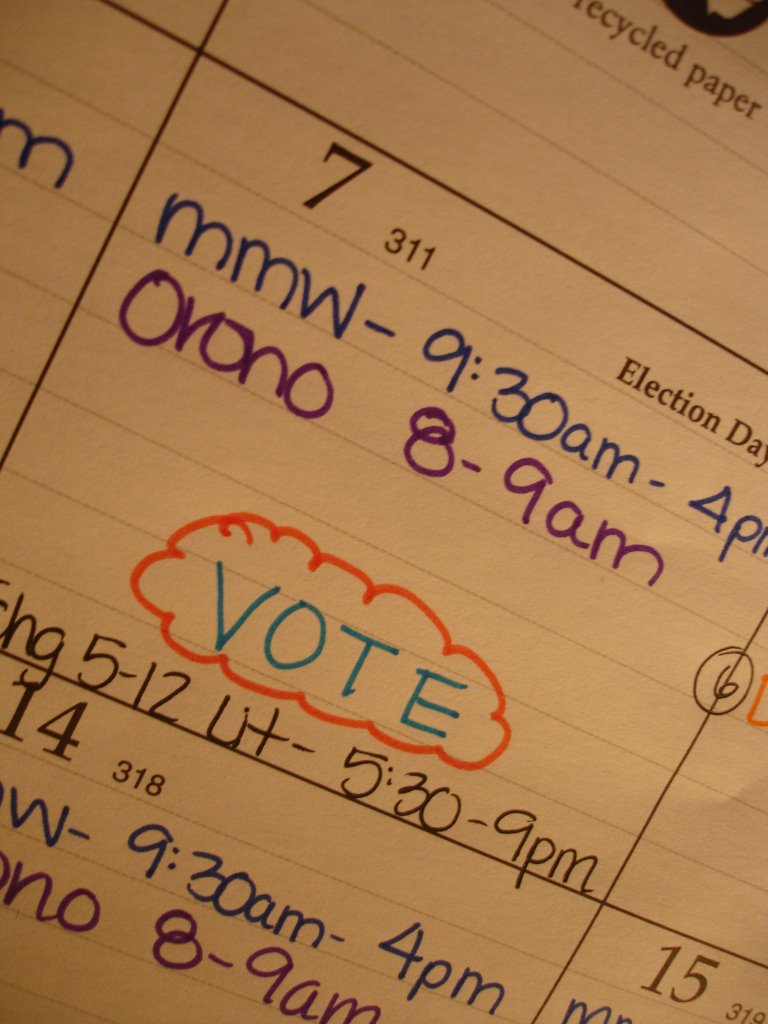 recycled paper
m
7 311
mmw - 9:30am - 4pm
Election Day
Orono 8-9am
VOTE
6
5-12 Lit - 5:30-9pm
14 318
mw - 9:30am - 4pm
ono 8-9am
15 319